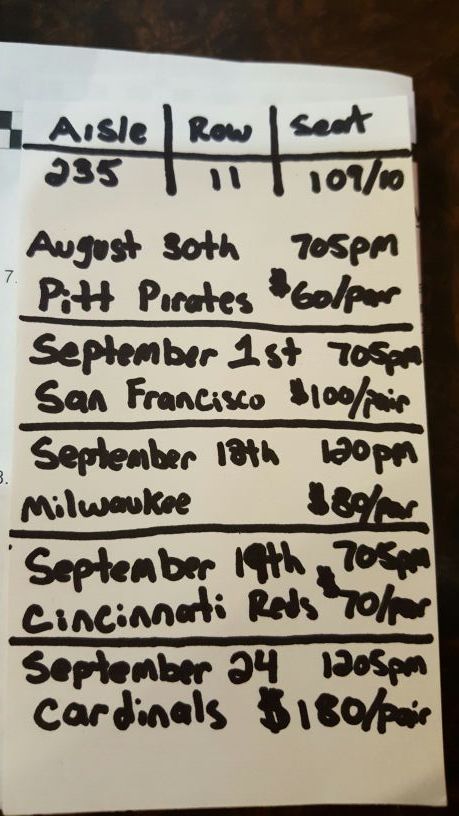 Aisle Row Seat
235 11 109/10
August 30th 705pm
Pitt Pirates $60/pair
September 1st 705pm
San Francisco $100/pair
September 18th 120pm
Milwaukee $80/pair
September 19th 705pm
Cincinnati Reds $70/pair
September 24 1205pm
Cardinals $180/pair
7.
3.